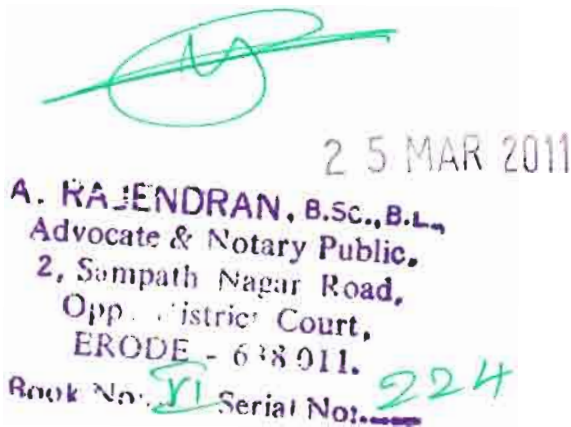 25 MAR 2011
A. RAJENDRAN, B.Sc., B.L.,
Advocate & Notary Public,
2, Sampath Nagar Road,
Opp. District Court,
ERODE - 638 011.
Book No: VI Serial No: 224